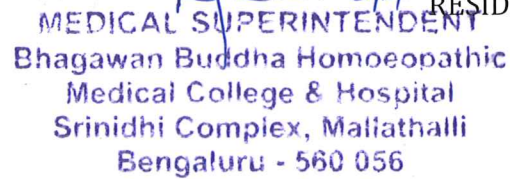 RESID
MEDICAL SUPERINTENDENT
Bhagawan Buddha Homoeopathic
Medical College & Hospital
Srinidhi Complex, Mallathalli
Bengaluru - 560 056